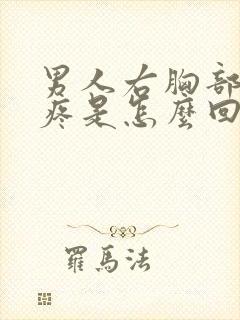 男人右胸部
疼是怎麼回
羅馬法